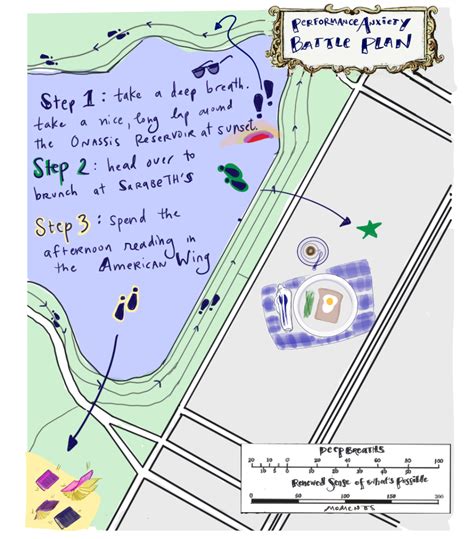 PERFORMANCE ANXIETY
BATTLE PLAN
Step 1: take a deep breath.
take a nice, long lap around
the ONASSIS RESERVOIR at sunset.
Step 2: head over to
brunch at SARABETH'S
Step 3: spend the
afternoon reading in
the AMERICAN WING
DEEP BREATHS
20 10 0 20 40 60 80 100
20 15 10 5 0
Renewed Sense of what's Possible
100 50 0 100 200 300
MOMENTS